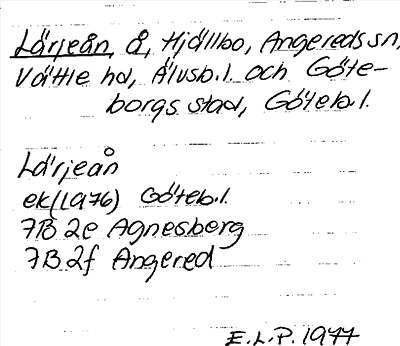 Lärjeån, å, Hjällbo, Angereds sn,
Vättle hd, Älvsb.l. och Göte-
borgs stad, Göteb.l.
Lärjeån
ek(1976) Göteb.l.
7B 2e Agnesberg
7B 2f Angered
E.L.P. 1977